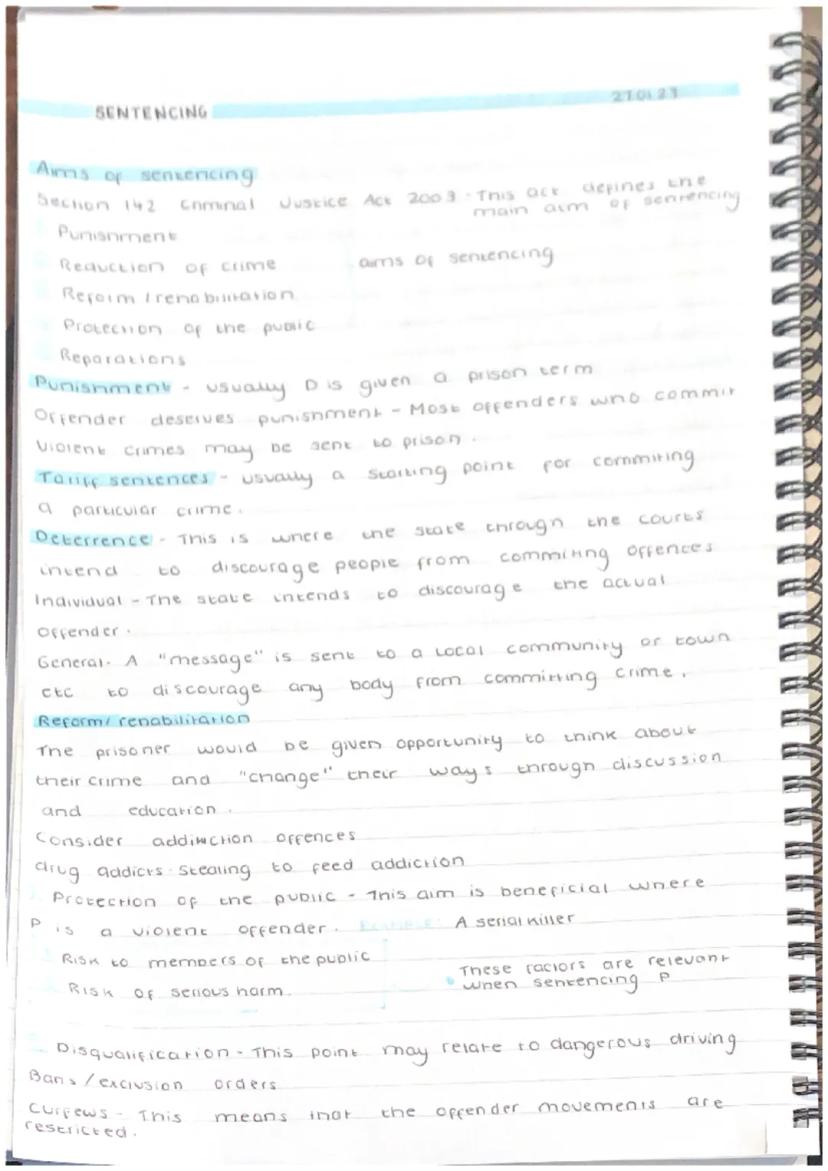 27.01.23
SENTENCING
Aims of sentencing
Section 142 Criminal Justice Act 2003 - This act defines the
main aim of sentencing
Punishment
Reduction of crime aims of sentencing
Reform / rehabilitation
Protection of the public
Reparations
Punishment - usually D is given a prison term
Offender deserves punishment - Most offenders who commit
violent crimes may be sent to prison.
Tariff sentences - usually a starting point for commiting
a particular crime.
Deterrence - This is where the state through the courts
intend to discourage people from commiting offences
Individual - The state intends to discourage the actual
offender.
General. A "message" is sent to a local community or town
etc to discourage any body from committing crime.
Reform/ rehabilitation
The prisoner would be given opportunity to think about
their crime and "change" their ways through discussion
and education.
Consider addinction offences
drug addicts. Stealing to feed addiction
Protection of the public - This aim is beneficial where
P is a violent offender. Example: A serial killer
Risk to members of the public
Risk of serious harm.
These factors are relevant
when sentencing P
Disqualification - This point may relate to dangerous driving
Bans / exclusion orders
Curfews - This means that the offender movements are
restricted.